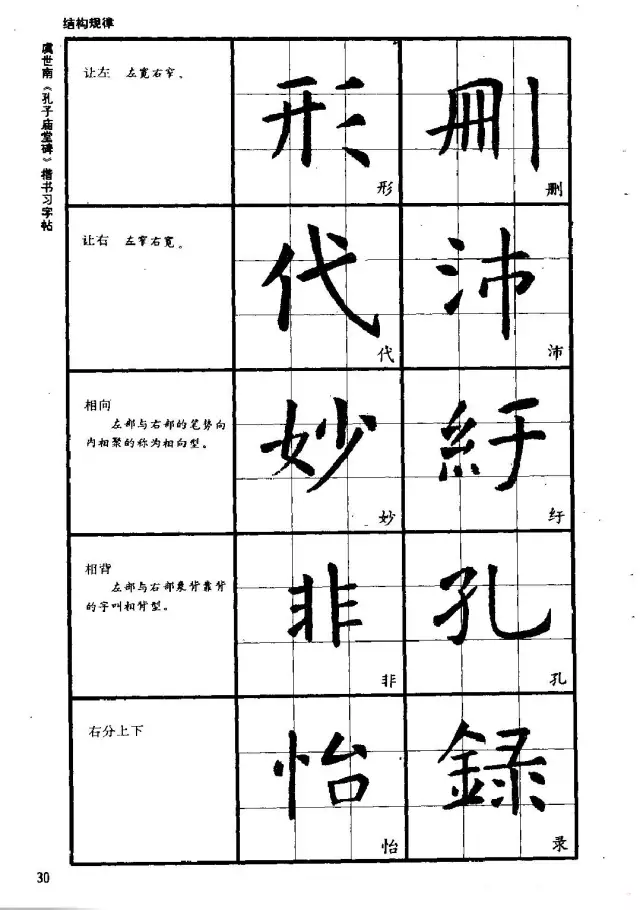 结构规律
虞世南《孔子庙堂碑》楷书习字帖
让左 左宽右窄。
形 删
形 删
让右 左窄右宽。
代 沛
代 沛
相向
左部与右部的笔势向
内相聚的称为相向型。
妙 紆
妙 纡
相背
左部与右部象背靠背
的字叫相背型。
非 孔
非 孔
右分上下
怡 録
怡 录
30